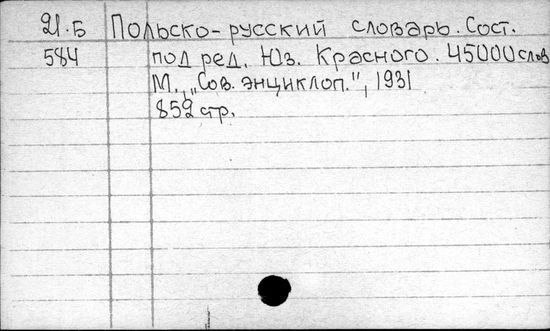 21.Б Польско-русский словарь. Сост.
584 под ред. Юз. Красного. 45000 слов
М., „Сов. энциклоп.", 1931
852 стр.